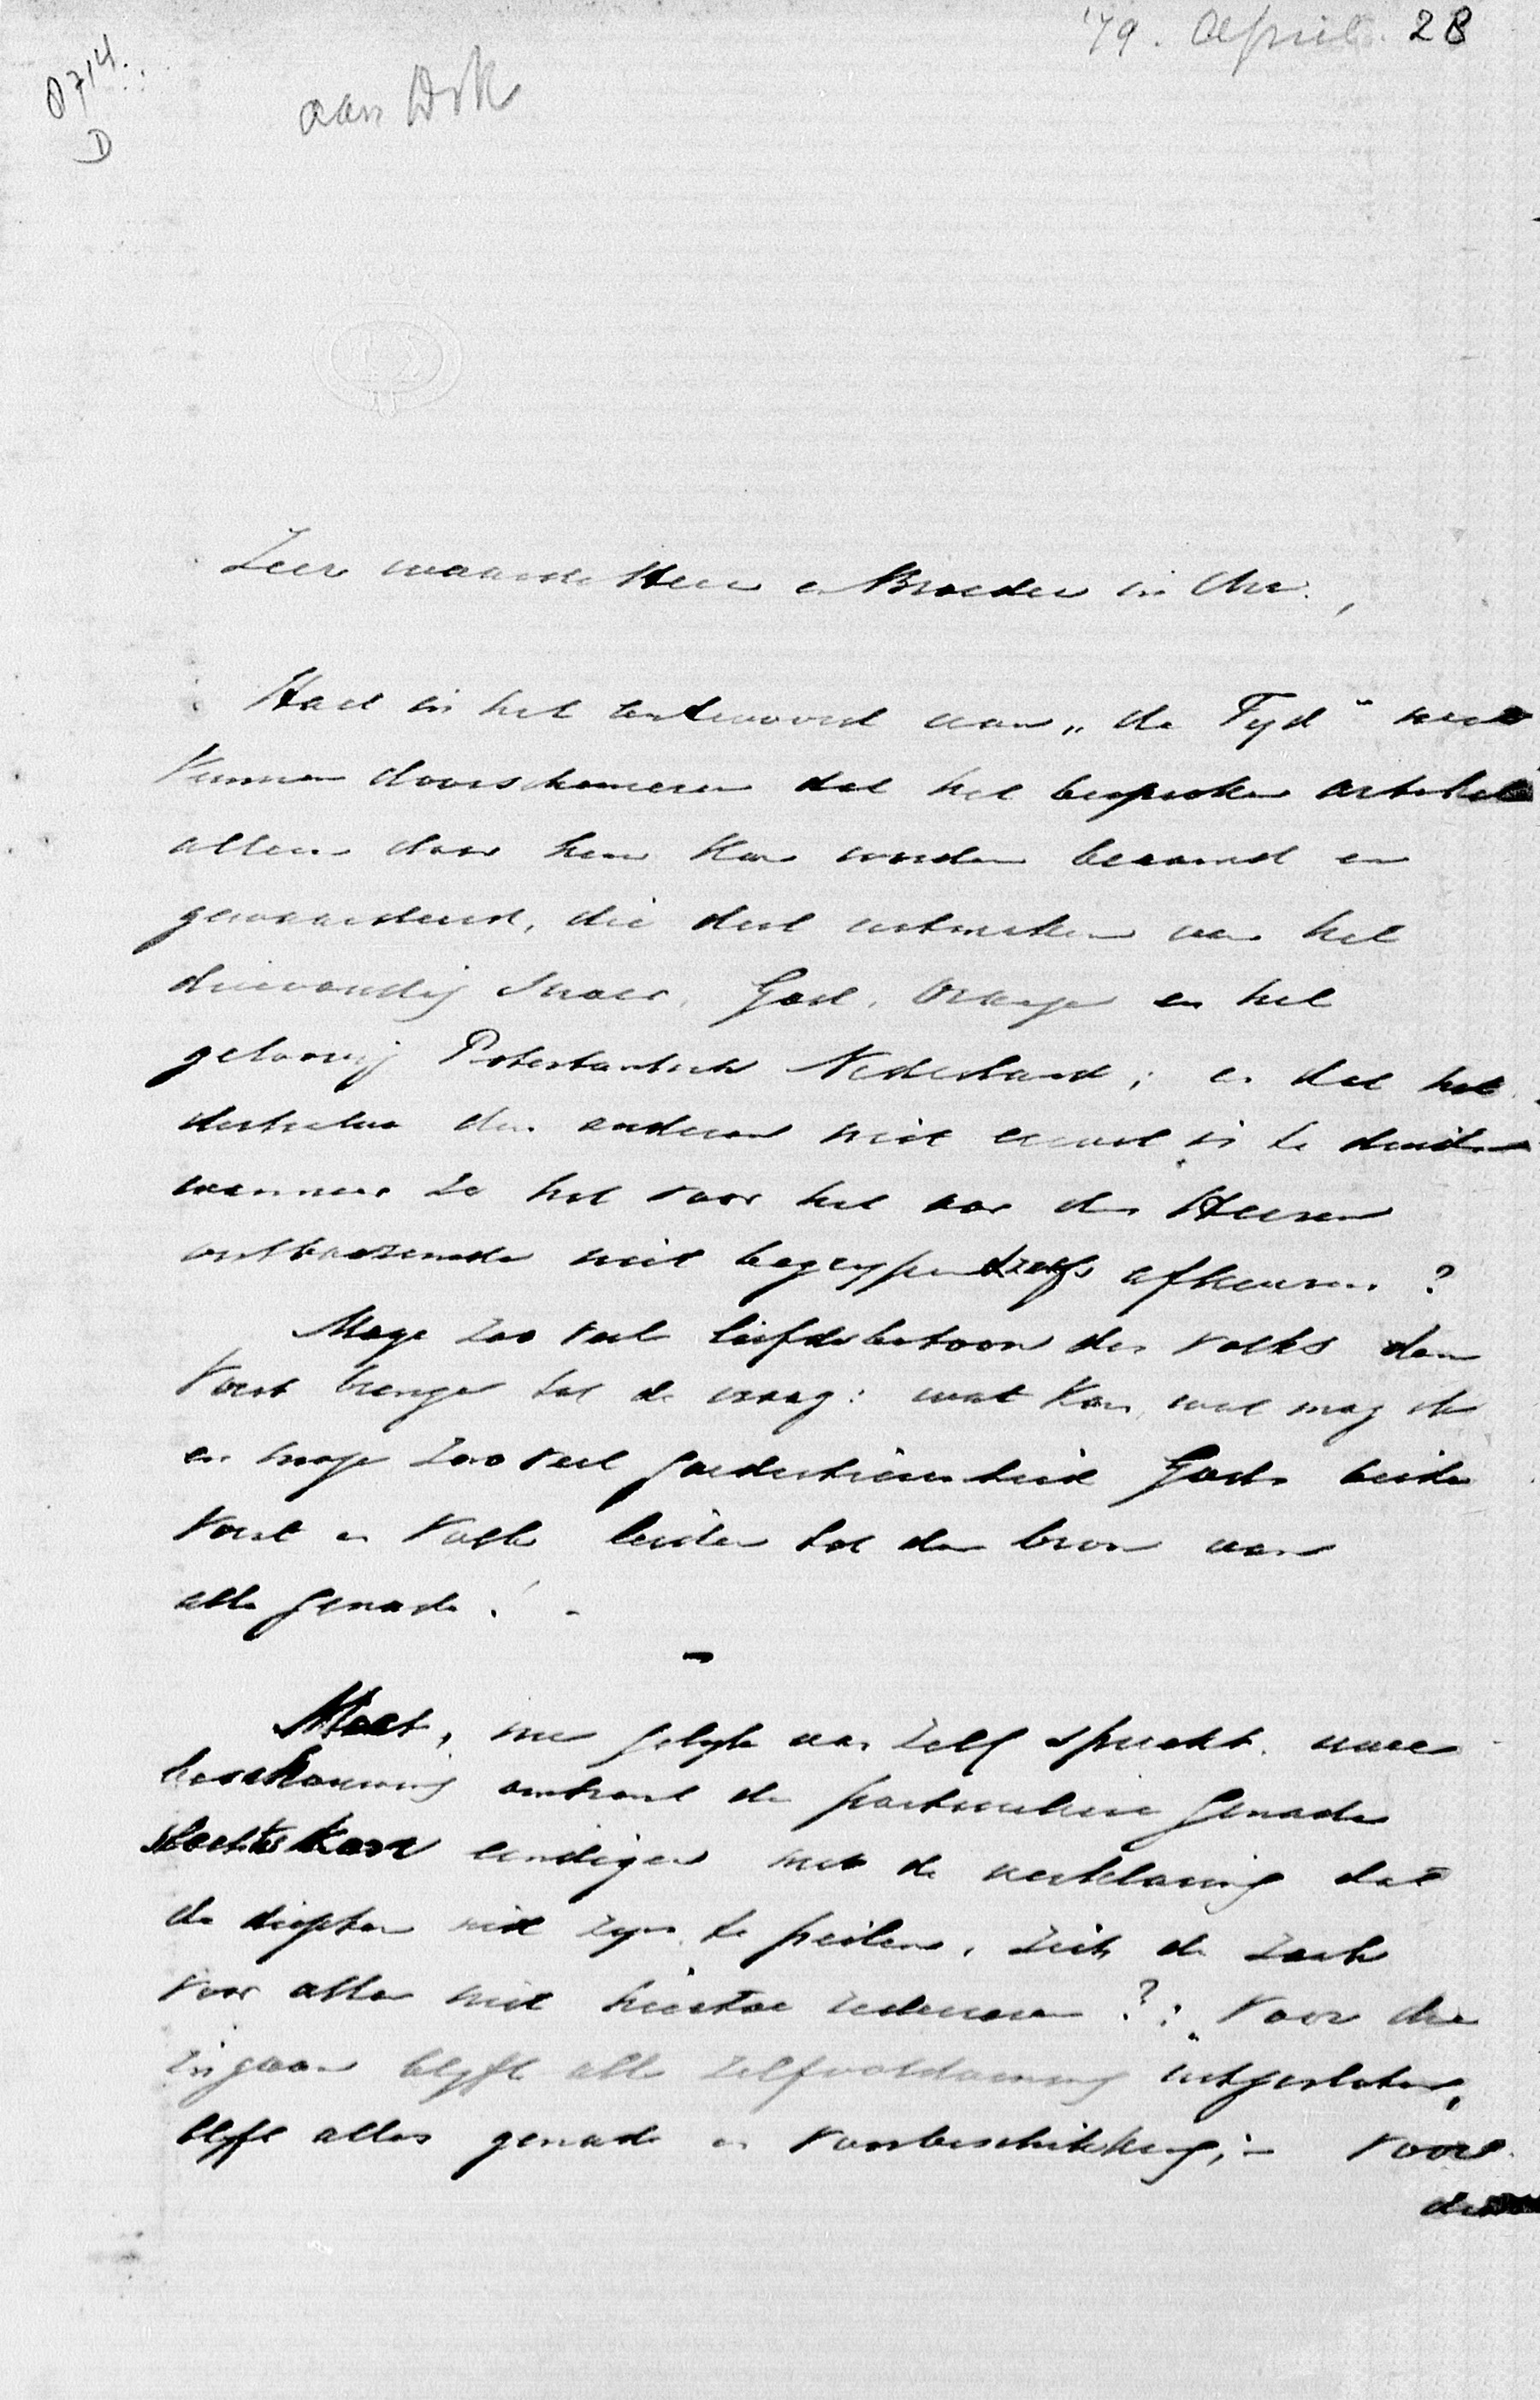 '79. April. 28
0714.
D
aan Dr K
Zeer waarde Heer en Broeder in Chr.,
Had in het antwoord aan „de Tyd" niet
kunnen doorschemeren dat het besproken artikel
alleen door hen kan worden beaamd en
gewaardeerd, die deel uitmaken van het
drievoudig snoer, God, Oranje en het
geloovig Protestantsch Nederland; en dat het
derhalve den anderen niet euvel is te duiden
wanneer ze het voor het oor des Heeren
niet begrypen zelfs afkeuren?
Moge zoo veel liefdebetoon des volks den
Vorst brengen tot de vraag: wat kan, wat mag ik
en moge zooveel goedertierenheid Gods beide
Vorst en Volk leiden tot den bron van
alle genade! -
Moet, me gelyk van zelf spreekt, uwe
beschouwing omtrent de particuliere genade
slechts kan eindigen met de verklaring dat
de diepten niet zyn te peilen, zich de zaak
voor allen niet hiertoe redeneren?: Voor die
ingaan blyft alle zelfvoldoening uitgesloten,
blyft alles genade en voorbeschikking; - voor
de